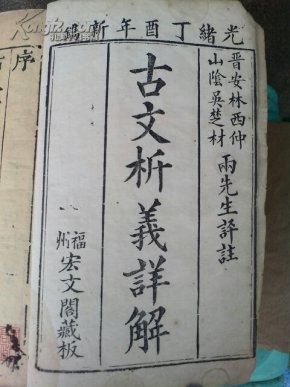 光緒丁酉年新鐫
晋安林西仲
山陰吳楚材
兩先生評註
古文析義詳解
福州
宏文閣藏板
序